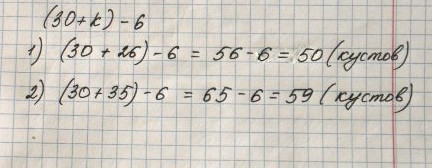 (30+k) - 6
1) (30 + 26) - 6 = 56 - 6 = 50 (кустов)
2) (30 + 35) - 6 = 65 - 6 = 59 (кустов)